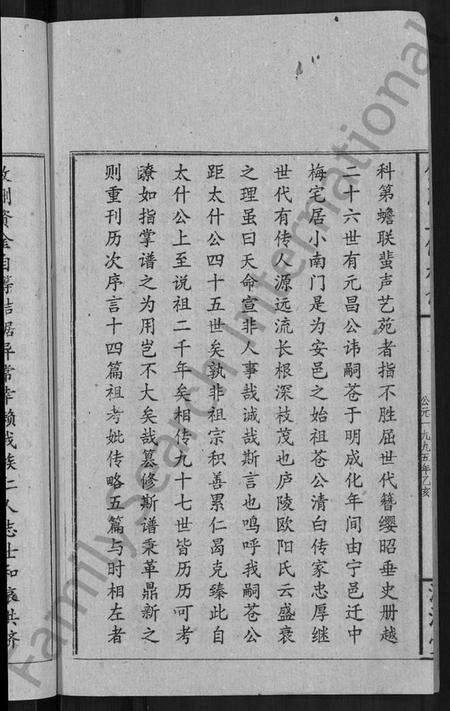 科第蟾联蜚声艺苑者指不胜屈世代簪缨昭垂史册越
二十六世有元昌公讳嗣苍于明成化年间由宁邑迁中
梅宅居小南门是为安邑之始祖苍公清白传家忠厚继
世代有传人源远流长根深枝茂也庐陵欧阳氏云盛衰
之理虽曰天命宣非人事哉诚哉斯言也呜呼我嗣苍公
距太什公四十五世矣孰非祖宗积善累仁曷克臻此自
太什公上至说祖二千年矣相传九十七世皆历历可考
瞭如指掌谱之为用岂不大矣哉纂修斯谱秉革鼎新之
则重刊历次序言十四篇祖考妣传略五篇与时相左者
公元一九九五年乙亥
FamilySearch International